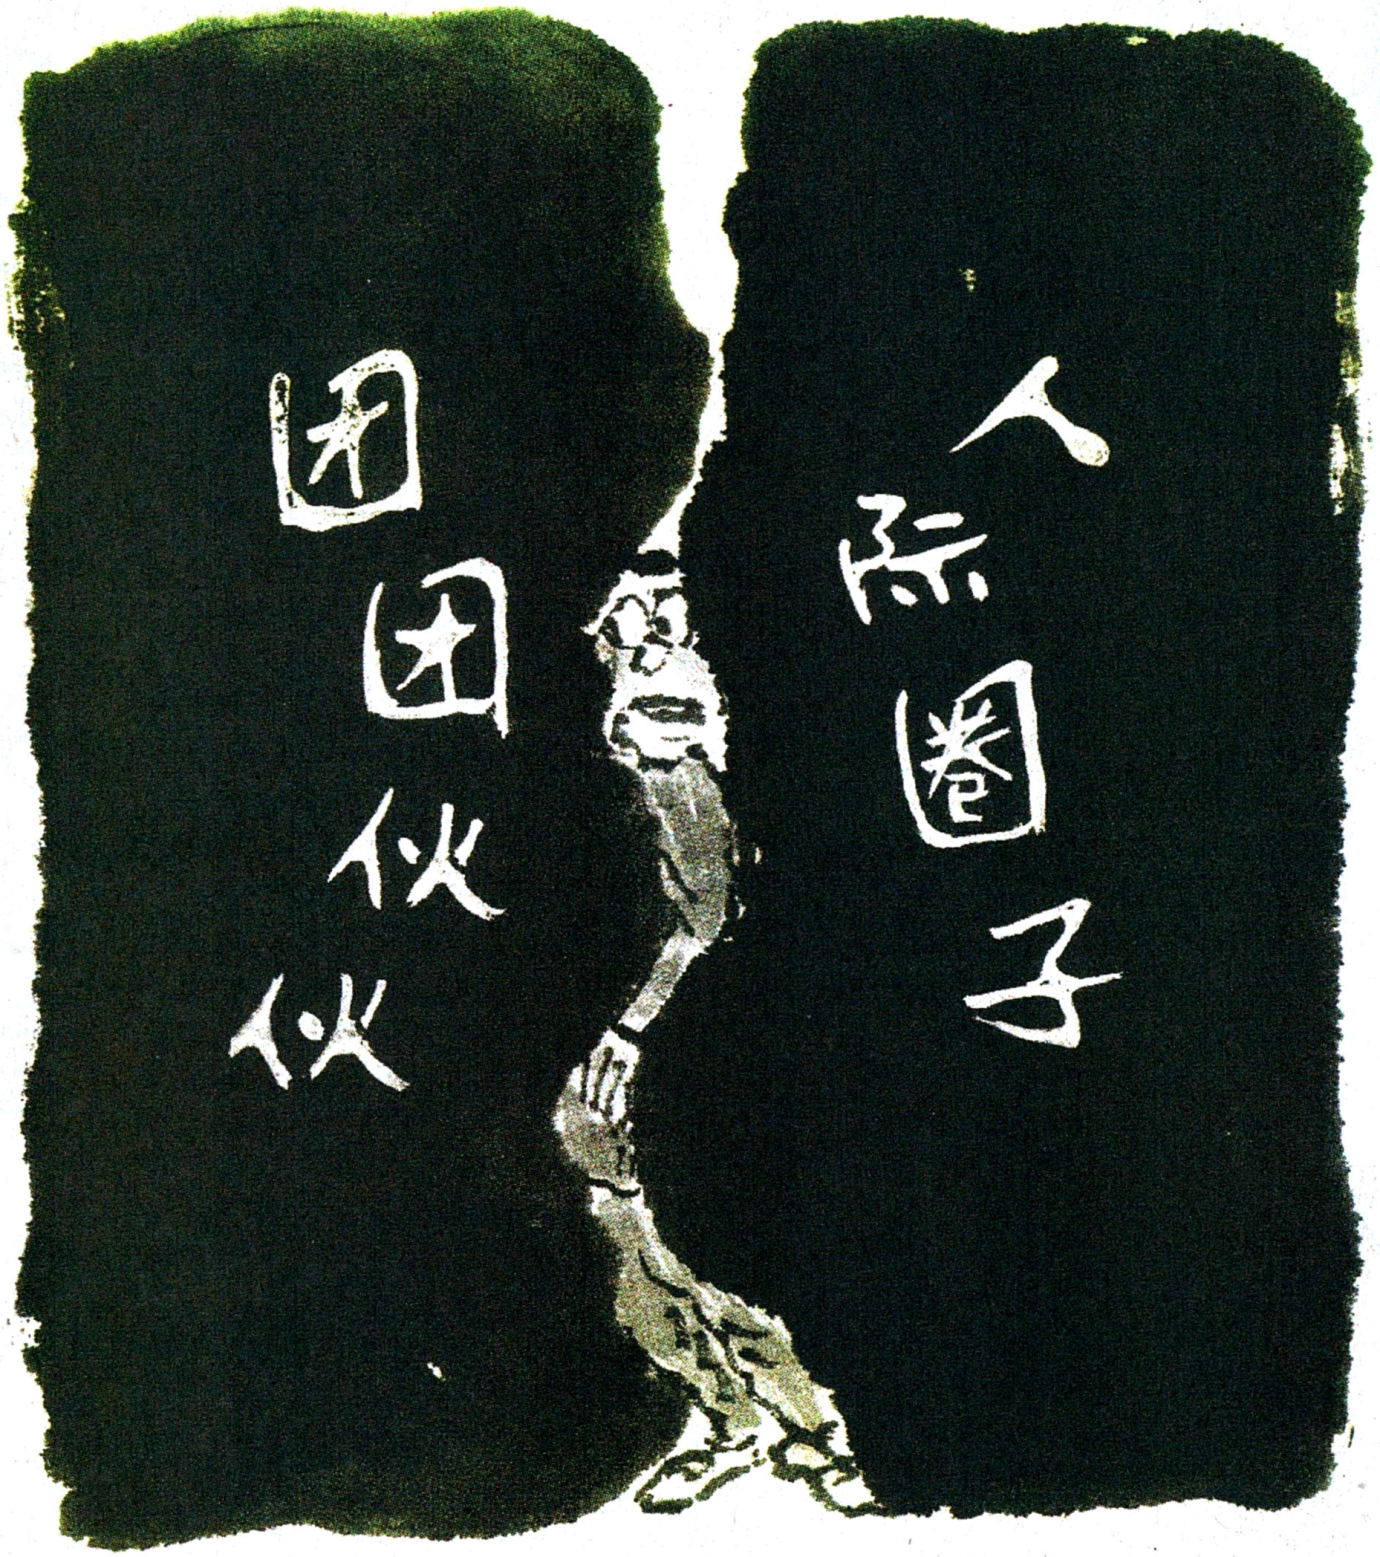 团团伙伙
人际圈子